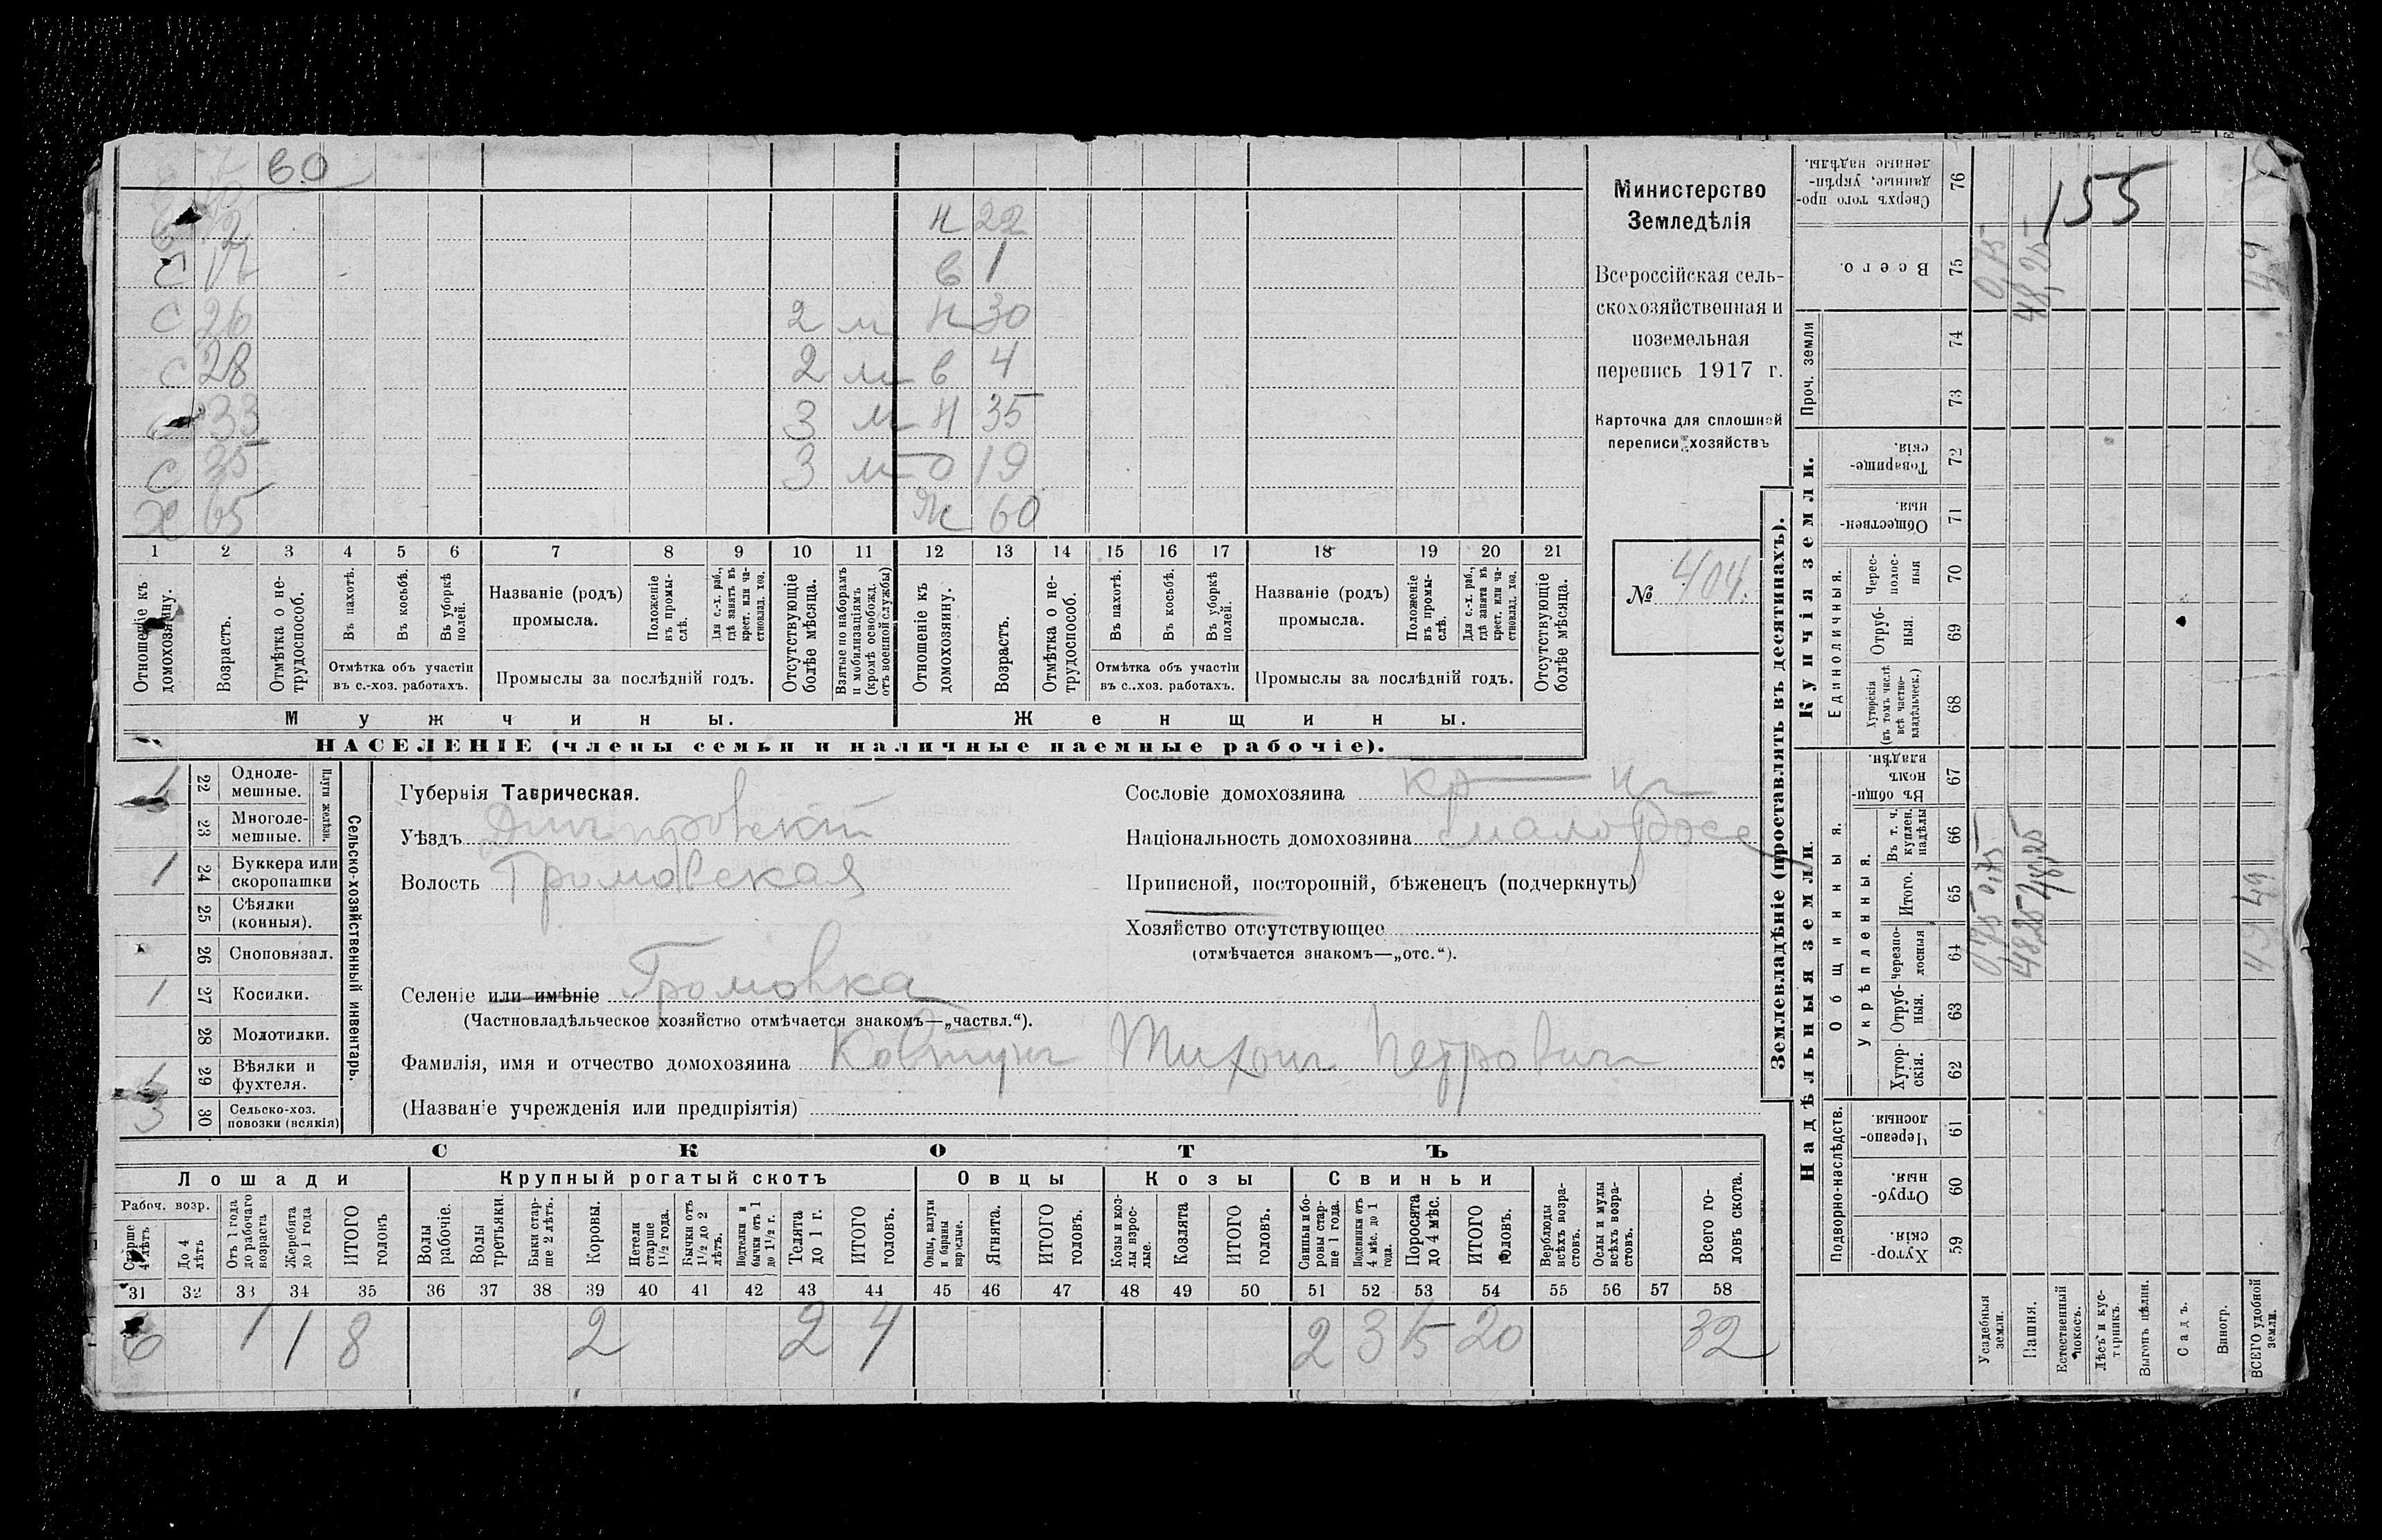 60
12 н 22
с 17 в 1
с 26 2 м н 30
с 28 2 м в 4
33 3 м н 35
с 35 3 м о 19
х 65 ж 60
1 2 3 4 5 6 7 8 9 10 11 12 13 14 15 16 17 18 19 20 21
Отношеніе къ домохозяину.
Возрастъ.
Отмѣтка о нетрудоспособ.
Въ пахотѣ.
Въ косьбѣ.
Въ уборкѣ полей.
Отмѣтка объ участіи
въ с.-хоз. работахъ.
Названіе (родъ)
промысла.
Положеніе въ промыслѣ.
Для с.-х. раб., гдѣ занятъ въ крест. или частновлад. хоз.
Промыслы за послѣдній годъ.
Отсутствующіе болѣе мѣсяца.
Взятые по наборамъ и мобилизаціямъ (кромѣ освобожд. отъ военной службы)
Отношеніе къ домохозяину.
Возрастъ.
Отмѣтка о нетрудоспособ.
Въ пахотѣ.
Въ косьбѣ.
Въ уборкѣ полей.
Отмѣтка объ участіи
въ с..хоз. работахъ.
Названіе (родъ)
промысла.
Положеніе въ промыслѣ.
Для с.-х. раб., гдѣ занята въ крест. или частновлад. хоз.
Промыслы за послѣдній годъ.
Отсутствующіе болѣе мѣсяца.
Мужчины. Женщины.
НАСЕЛЕНІЕ (члены семьи и наличные наемные рабочіе).
Министерство
Земледѣлія
Всероссійская сель-
скохозяйственная и
поземельная
перепись 1917 г.
Карточка для сплошной
переписи хозяйствъ
№ 404.
Сельско-хозяйственный инвентарь.
Плуги желѣзн.
1 22 Одноле-
мешные.
23 Многоле-
мешные.
1 24 Буккера или
скоропашки
25 Сѣялки
(конныя).
26 Сноповязал.
1 27 Косилки.
28 Молотилки.
1 29 Вѣялки и
фухтеля.
3 30 Сельско-хоз.
повозки (всякія)
Губернія Таврическая.
Уѣздъ Днѣпровскій
Волость Громовская
Селеніе или имѣніе Громовка
(Частновладѣльческое хозяйство отмѣчается знакомъ—„частвл.“).
Фамилія, имя и отчество домохозяина Ковтунъ Тихонъ Петровичъ
(Названіе учрежденія или предпріятія)
Сословіе домохозяина кр—нъ
Національность домохозяина
Приписной, посторонній, бѣженецъ (подчеркнуть)
Хозяйство отсутствующее
(отмѣчается знакомъ—„отс.“).
СКОТЪ
Лошади Крупный рогатый скотъ Овцы Козы Свиньи
Рабоч. возр.
Старше 4 лѣтъ
До 4 лѣтъ
Отъ 1 года до рабочаго возраста
Жеребята до 1 года
ИТОГО головъ
Волы рабочіе.
Волы третьяки.
Быки старше 2 лѣтъ.
Коровы.
Нетели старше 1 1/2 года.
Бычки отъ 1 1/2 до 2 лѣтъ.
Подтелки и бычки отъ 1 до 1 1/2 г.
Телята до 1 г.
ИТОГО головъ.
Овцы, валухи и бараны взрослые.
Ягнята.
ИТОГО головъ.
Козы и козлы взрослые.
Козлята
ИТОГО головъ.
Свиньи и боровы старше 1 года.
Подсвинки отъ 4 мѣс. до 1 года.
Поросята до 4 мѣс.
ИТОГО головъ.
Верблюды всѣхъ возрастовъ.
Ослы и мулы всѣхъ возрастовъ.
Всего головъ скота.
31 32 33 34 35 36 37 38 39 40 41 42 43 44 45 46 47 48 49 50 51 52 53 54 55 56 57 58
6 1 1 8 2 2 4 2 3 15 20 32
Землевладѣніе (проставлять въ десятинахъ).
Надѣльныя земли.
Купчія земли.
Проч. земли
Подворно-наслѣдств.
Общинныя.
Укрѣпленныя.
Единоличныя.
Хуторскія. 59
Отрубныя. 60
Черезполосныя 61
Хуторскія. 62
Отрубныя. 63
Черезполосныя 64
Итого. 65
Въ т. ч. куплен. надѣлы 66
Въ общинномъ владѣн. 67
Хуторскія (въ томъ числѣ всѣ частновладѣльческ.) 68
Отрубныя. 69
Чересполосныя 70
Общественныя. 71
Товарищескія. 72
73
74
Всего. 75
Сверхъ того проданные, укрѣпленные надѣлы. 76
Усадебныя земли. 0,75 0,75 0,75
Пашня. 48,25 48,25 48,25
Естественный покосъ.
Лѣсъ и кустарникъ.
Выгонъ цѣлин.
Садъ.
Виногр.
ВСЕГО удобной земли. 49 49 49
155